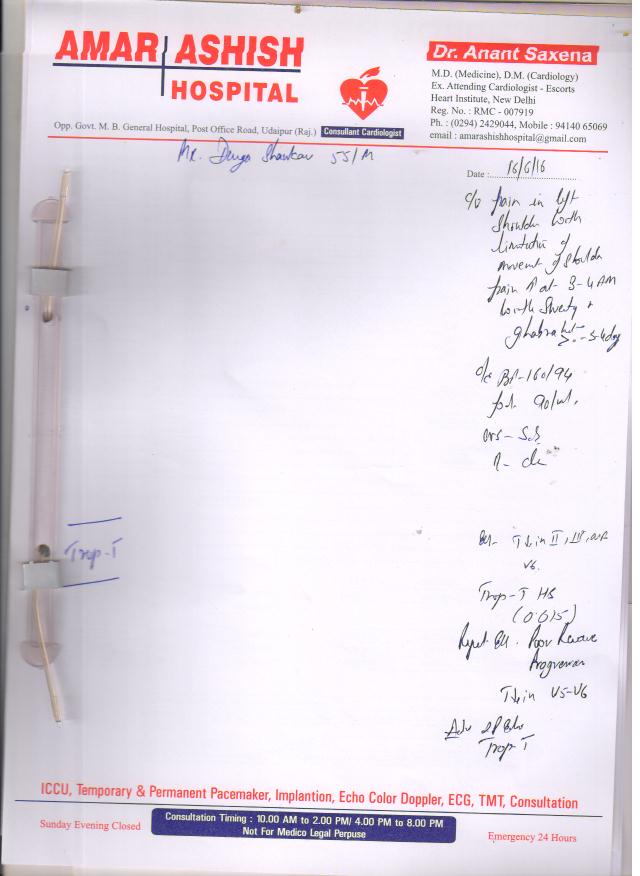 AMAR ASHISH
HOSPITAL
Dr. Anant Saxena
M.D. (Medicine), D.M. (Cardiology)
Ex. Attending Cardiologist - Escorts
Heart Institute, New Delhi
Reg. No. : RMC - 007919
Ph. : (0294) 2429044, Mobile : 94140 65069
email : amarashishhospital@gmail.com
Opp. Govt. M. B. General Hospital, Post Office Road, Udaipur (Raj.)
Consultant Cardiologist
Mr. Durga Shankar 55/M
Date : 16/6/16
c/o pain in left
Shoulder with
limitation of
movement of shoulder
pain ↑ at 3-4 AM
with Sweaty +
3-4 day
o/e BP-160/94
90/mt.
cvs - S1S2
ECG - T↓ in II, III, avF
V6.
Trop-T HS
(0.015)
Repeat ECG. Poor R wave
Progression
T↓ in V5-V6
Adv 2D Echo
Trop-T
Trop-T
ICCU, Temporary & Permanent Pacemaker, Implantion, Echo Color Doppler, ECG, TMT, Consultation
Sunday Evening Closed
Consultation Timing : 10.00 AM to 2.00 PM/ 4.00 PM to 8.00 PM
Not For Medico Legal Perpuse
Emergency 24 Hours